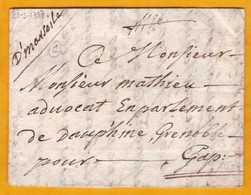 D'marseille
A Monsieur
Monsieur mathieu
advocat Enparlement
de dauphiné, Grenoble
pour Gap